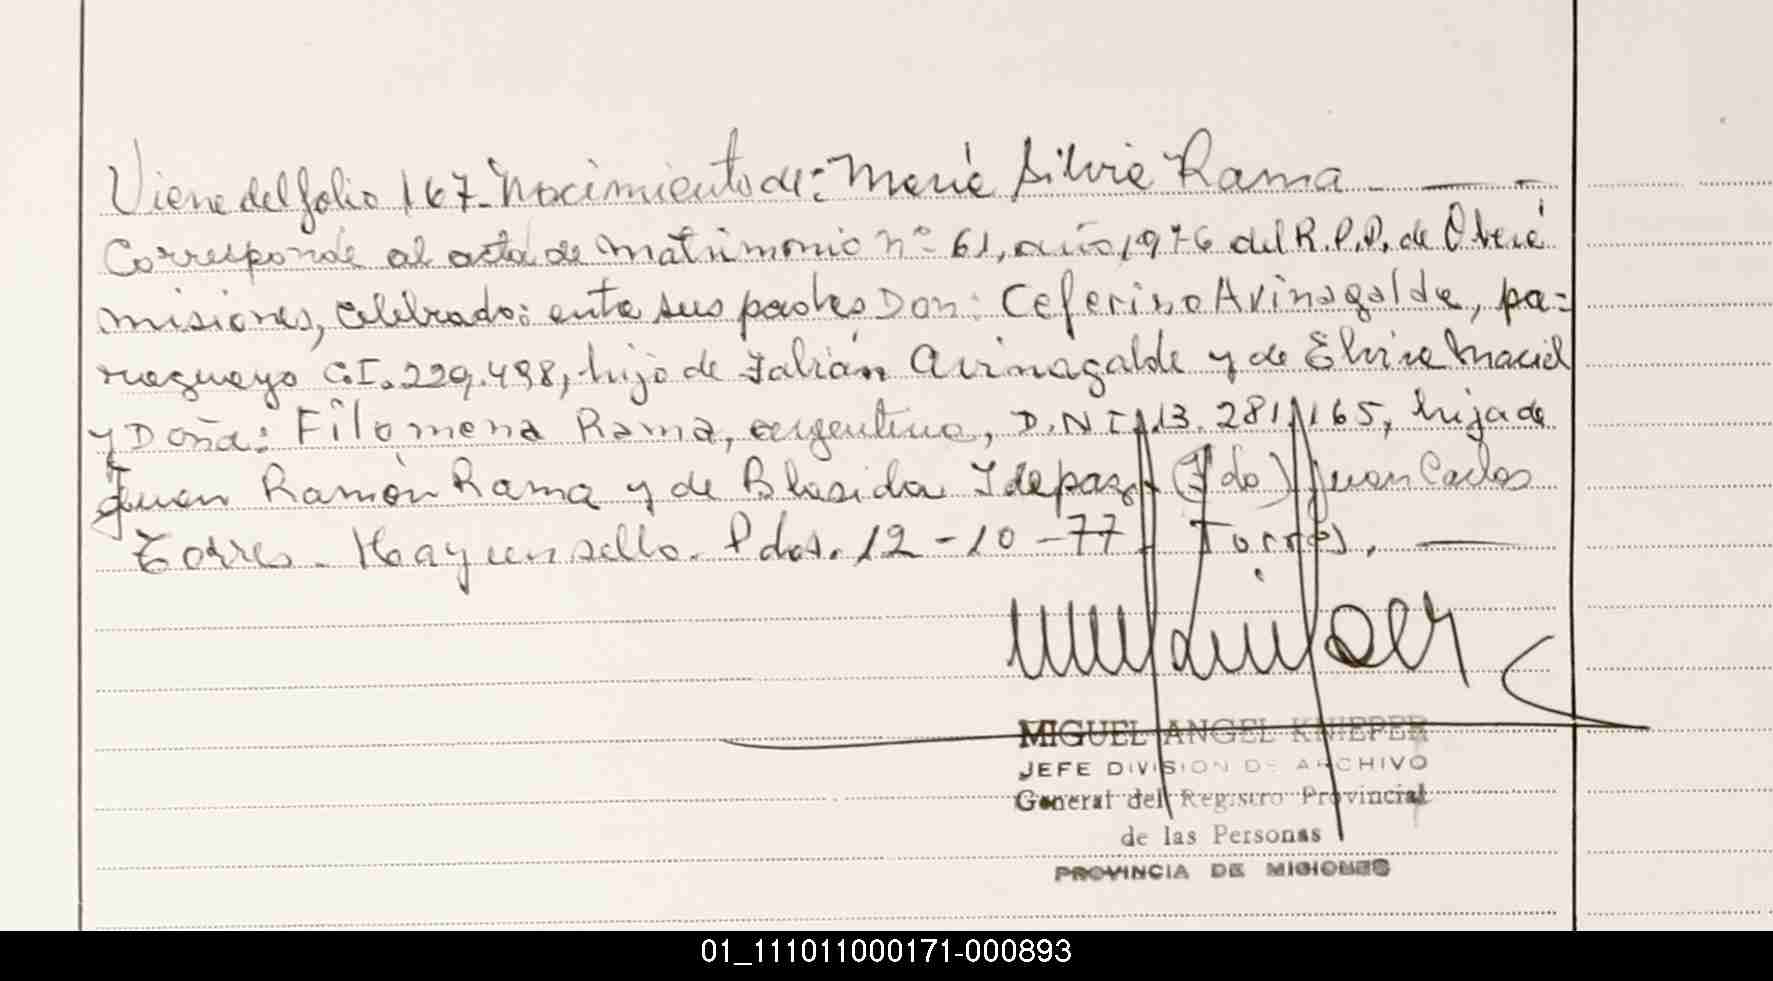 Viene del folio 167. Nacimiento de: María Silvia Rama. — -
Corresponde al acta de matrimonio nº 61, año 1976 del R.P.P. de Oberá
misiones, celebrado: entre sus padres Don: Ceferino Arinagalde, pa=
raguayo C.I. 229.498, hijo de Julián Arinagalde y de Elvira Maciel
y Doña: Filomena Rama, argentina, D.N.I. 13.281.165, hija de
Juan Ramón Rama y de Blasida Idepaz. (Fdo) Juan Carlos
Torres. Hay un sello. Pdas. 12-10-77 Torres. —
MIGUEL ANGEL KNIEPER
JEFE DIVISION DE ARCHIVO
General del Registro Provincial
de las Personas
PROVINCIA DE MISIONES
01_111011000171-000893